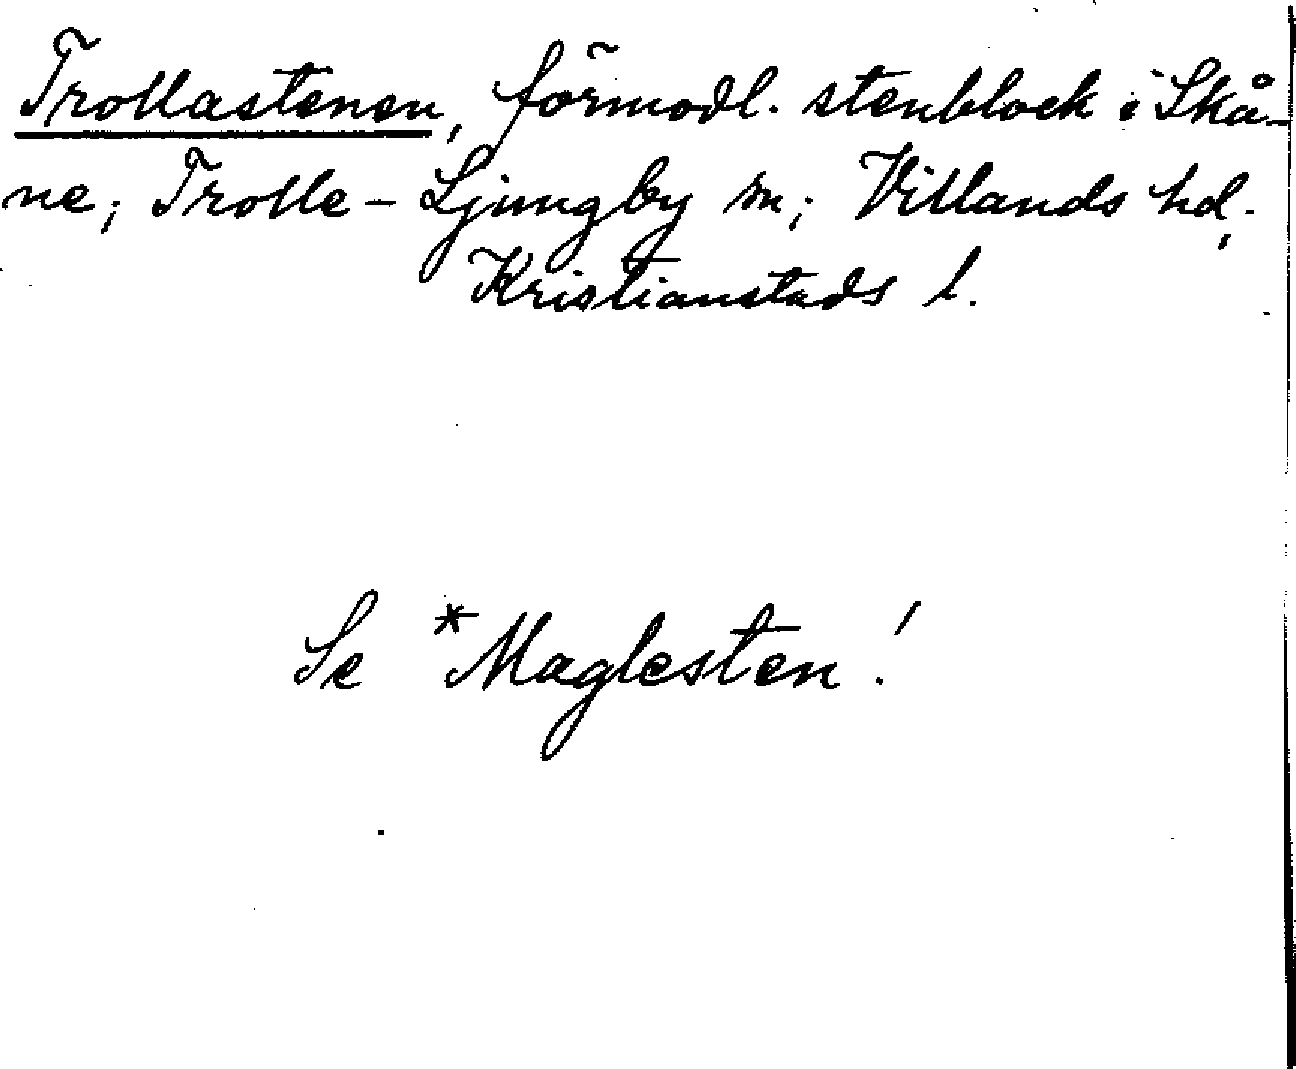 Trollastenen, förmodl. stenblock i Skå-
ne; Trolle-Ljungby sn; Villands hd,
Kristianstads l.
Se *Maglesten!